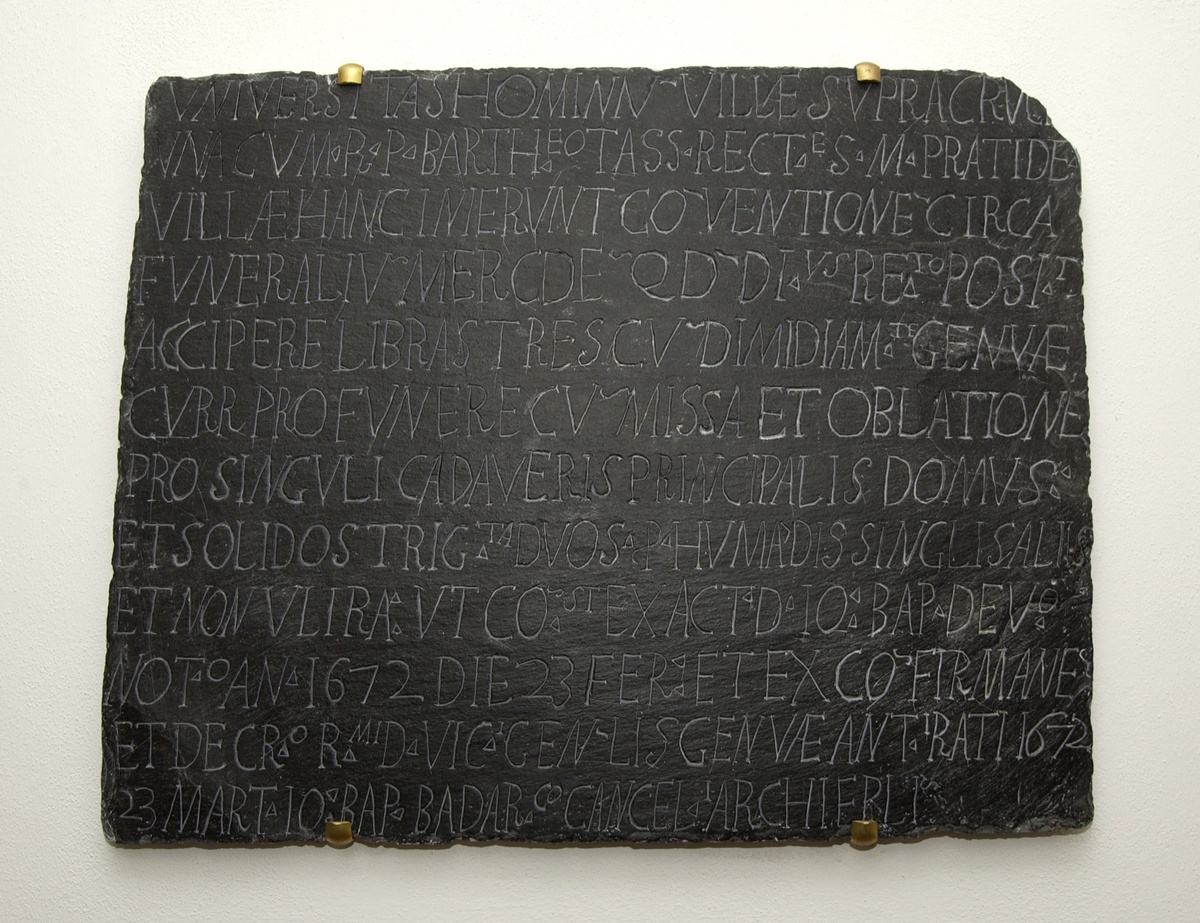 VNIVERSITAS HOMINN~ VILLÆ SVPRACRVC
VNACVM R. P. BARTHEO TASS. RECT.E S. M. PRATI DE
VILLÆ HANC INIERVNT CO~VENTIONE~ CIRCA
FVNERALIV~ MERCDE~ QD~ DI.VS RE.TO POSI.T
ACCIPERE LIBRAS TRES CV~ DIMIDIAM.TE GENVÆ
CVRR PRO FVNERE CV~ MISSA ET OBLATIONE
PRO SINGVLI CADAVERIS PRINCIPALIS DOMVS
ET SOLIDOS TRIG.TA DVOS P. HVMADIS SINGLIS ALIIS
ET NON VLTRA. VT CO~.ST EX ACT. D. IO. BAP. DE V.O
NOT.O AN. 1672 DIE 23 FER. ET EX CO~FIRMANE~
ET DECR.O R.MI D. VIC. GEN~LIS GENVÆ ANT.I RATI 1672
23 MART. IO. BAP. BADAR.CO CANCEL.I ARCHI